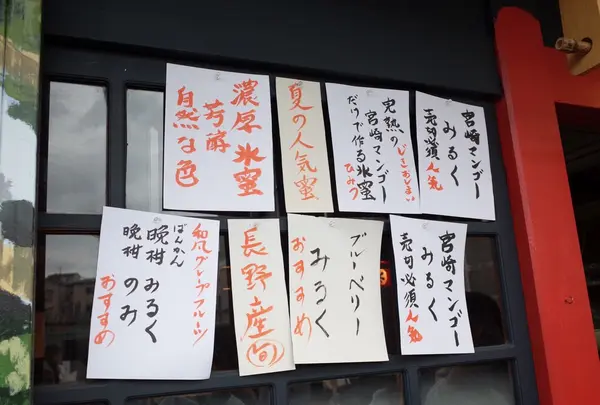 宮崎マンゴー
みるく
売切必須人気
完熟の
じきおしまい
宮崎マンゴー
だけで作る氷蜜
ひみつ
夏の人気蜜
濃厚氷蜜
芳醇
自然な色
宮崎マンゴー
みるく
売切必須人気
ブルーベリー
みるく
おすすめ
長野産旬
和風グレープフルーツ
ばんかん
晩柑みるく
晩柑のみ
おすすめ